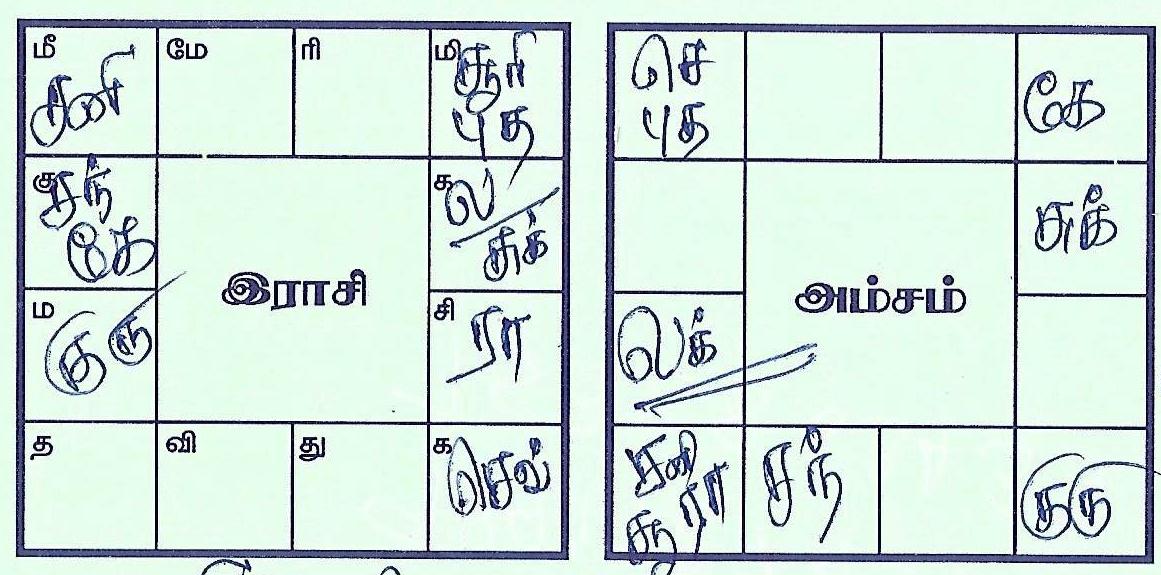 மீ
சனி
மே
ரி
மி
சூரி
புத
கு
சந்
கே
க
ல
சுக்
இராசி
ம
குரு
சி
ரா
த
வி
து
க
செவ்
செ
புத
கே
சுக்
அம்சம்
லக்
சனி
சூ ரா
சந்
குரு